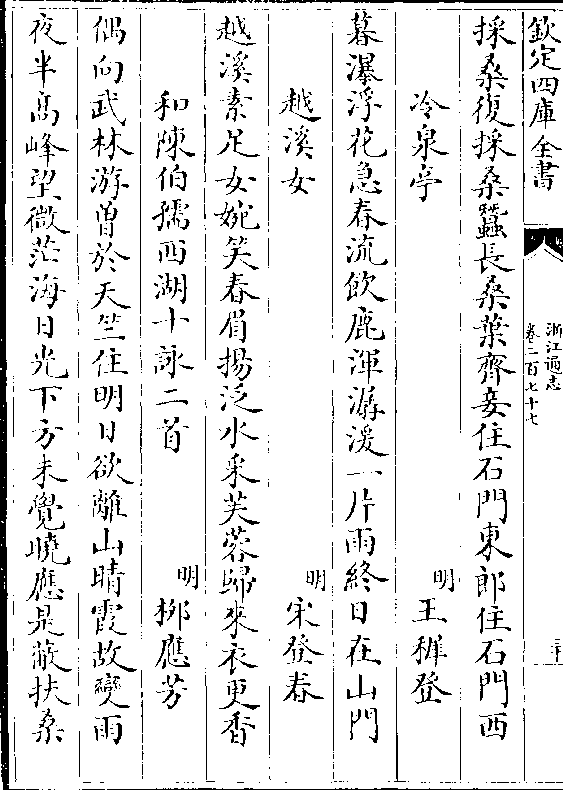 欽定四庫全書
浙江通志
卷二百七十七
採桑復採桑蠶長桑葉齊妾住石門東郎住石門西
冷泉亭
明
王穉登
暮瀑浮花急春流飲鹿渾潺湲一片雨終日在山門
越溪女
明
宋登春
越溪素足女婉笑春眉揚泛水采芙蓉歸來衣更香
和陳伯孺西湖十詠二首
明
栁應芳
偶向武林游曽於天竺住明日欲離山晴霞故變雨
夜半高峰望微茫海日光下方未覺曉應是蔽扶桑